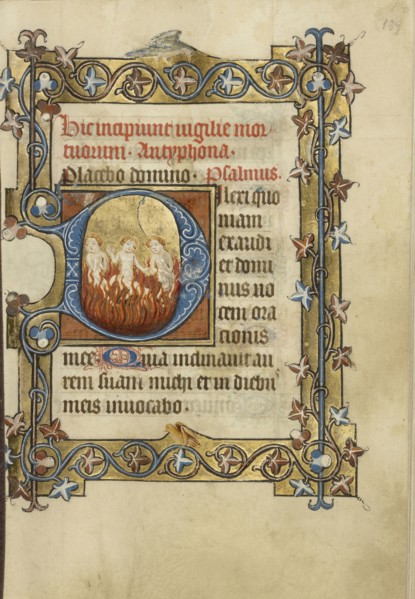 Hic incipiunt uigilie mor
tuorum. Antyphona.
Placebo domino. Psalmus.
Dilexi quo
niam
exaudi
et domi
nus uo
cem ora
cionis
mee Quia inclinauit au
rem suam michi et in diebus
meis inuocabo.